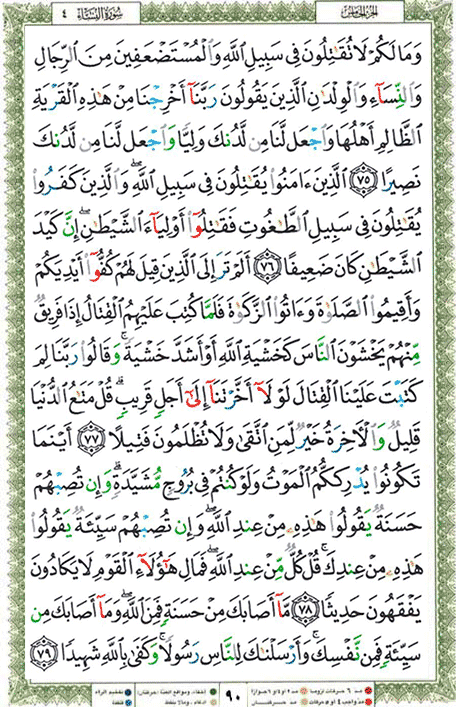 الجزء الخامس
سورة النساء ٤
وَمَا لَكُمْ لَا تُقَٰتِلُونَ فِى سَبِيلِ ٱللَّهِ وَٱلْمُسْتَضْعَفِينَ مِنَ ٱلرِّجَالِ
وَٱلنِّسَآءِ وَٱلْوِلْدَٰنِ ٱلَّذِينَ يَقُولُونَ رَبَّنَآ أَخْرِجْنَا مِنْ هَٰذِهِ ٱلْقَرْيَةِ
ٱلظَّالِمِ أَهْلُهَا وَٱجْعَل لَّنَا مِن لَّدُنكَ وَلِيًّا وَٱجْعَل لَّنَا مِن لَّدُنكَ
نَصِيرًا ٧٥ ٱلَّذِينَ ءَامَنُوا۟ يُقَٰتِلُونَ فِى سَبِيلِ ٱللَّهِ ۖ وَٱلَّذِينَ كَفَرُوا۟
يُقَٰتِلُونَ فِى سَبِيلِ ٱلطَّٰغُوتِ فَقَٰتِلُوٓا۟ أَوْلِيَآءَ ٱلشَّيْطَٰنِ ۖ إِنَّ كَيْدَ
ٱلشَّيْطَٰنِ كَانَ ضَعِيفًا ٧٦ أَلَمْ تَرَ إِلَى ٱلَّذِينَ قِيلَ لَهُمْ كُفُّوٓا۟ أَيْدِيَكُمْ
وَأَقِيمُوا۟ ٱلصَّلَوٰةَ وَءَاتُوا۟ ٱلزَّكَوٰةَ فَلَمَّا كُتِبَ عَلَيْهِمُ ٱلْقِتَالُ إِذَا فَرِيقٌ
مِّنْهُمْ يَخْشَوْنَ ٱلنَّاسَ كَخَشْيَةِ ٱللَّهِ أَوْ أَشَدَّ خَشْيَةً ۚ وَقَالُوا۟ رَبَّنَا لِمَ
كَتَبْتَ عَلَيْنَا ٱلْقِتَالَ لَوْلَآ أَخَّرْتَنَآ إِلَىٰٓ أَجَلٍ قَرِيبٍ ۗ قُلْ مَتَٰعُ ٱلدُّنْيَا
قَلِيلٌ وَٱلْءَاخِرَةُ خَيْرٌ لِّمَنِ ٱتَّقَىٰ وَلَا تُظْلَمُونَ فَتِيلًا ٧٧ أَيْنَمَا
تَكُونُوا۟ يُدْرِككُّمُ ٱلْمَوْتُ وَلَوْ كُنتُمْ فِى بُرُوجٍ مُّشَيَّدَةٍ ۗ وَإِن تُصِبْهُمْ
حَسَنَةٌ يَقُولُوا۟ هَٰذِهِۦ مِنْ عِندِ ٱللَّهِ ۖ وَإِن تُصِبْهُمْ سَيِّئَةٌ يَقُولُوا۟
هَٰذِهِۦ مِنْ عِندِكَ ۚ قُلْ كُلٌّ مِّنْ عِندِ ٱللَّهِ ۖ فَمَالِ هَٰٓؤُلَآءِ ٱلْقَوْمِ لَا يَكَادُونَ
يَفْقَهُونَ حَدِيثًا ٧٨ مَّآ أَصَابَكَ مِنْ حَسَنَةٍ فَمِنَ ٱللَّهِ ۖ وَمَآ أَصَابَكَ مِن
سَيِّئَةٍ فَمِن نَّفْسِكَ ۚ وَأَرْسَلْنَٰكَ لِلنَّاسِ رَسُولًا ۚ وَكَفَىٰ بِٱللَّهِ شَهِيدًا ٧٩
٩٠